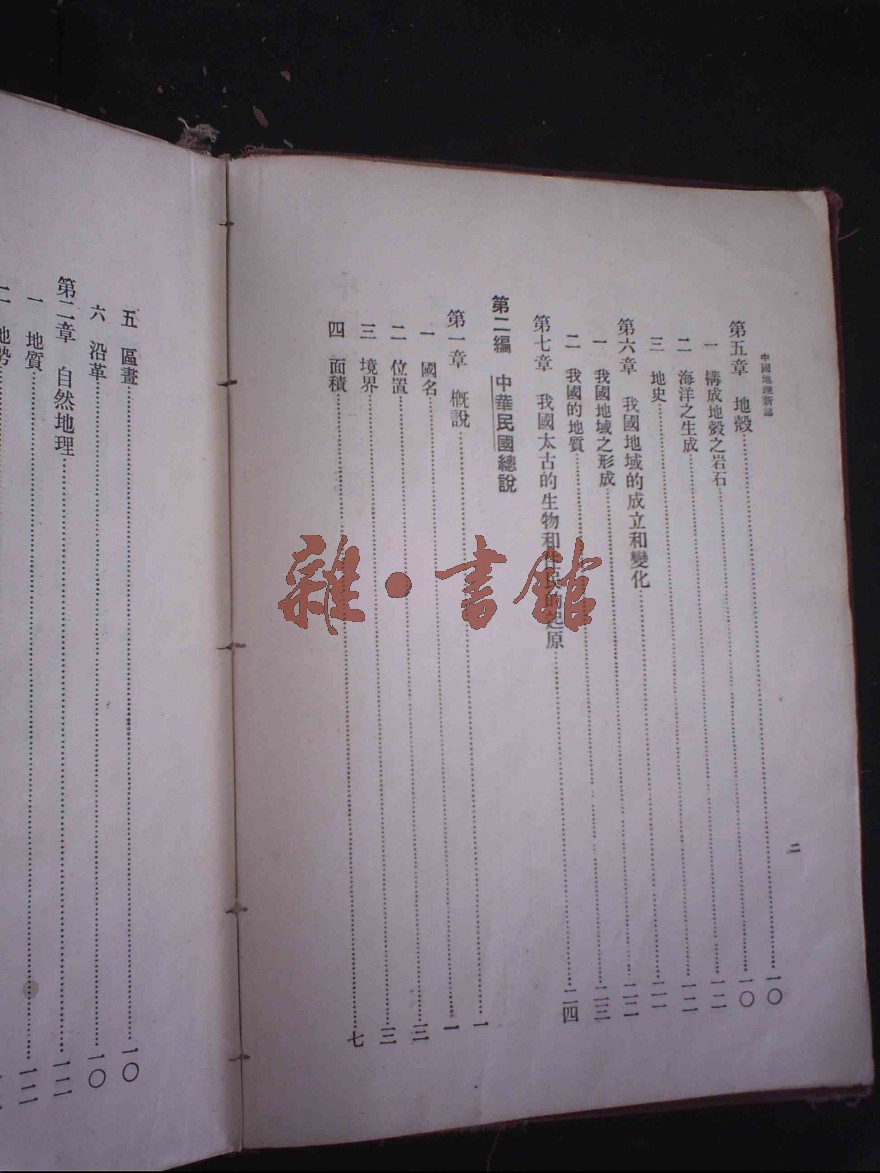 中國地理新誌
二
第五章 地殼……一〇
一 構成地殼之岩石……一〇
二 海洋之生成……一二
三 地史……
第六章 我國地域的成立和變化……
一 我國地域之形成……二二
二 我國的地質……二三
第七章 我國太古的生物和住民的起原……二四
第二編 中華民國總說
第一章 概說……一
一 國名……一
二 位置……三
三 境界……三
四 面積……七
五 區畫……一〇
六 沿革……一〇
第二章 自然地理……一二
一 地質……一二
二 地勢
雜·書館